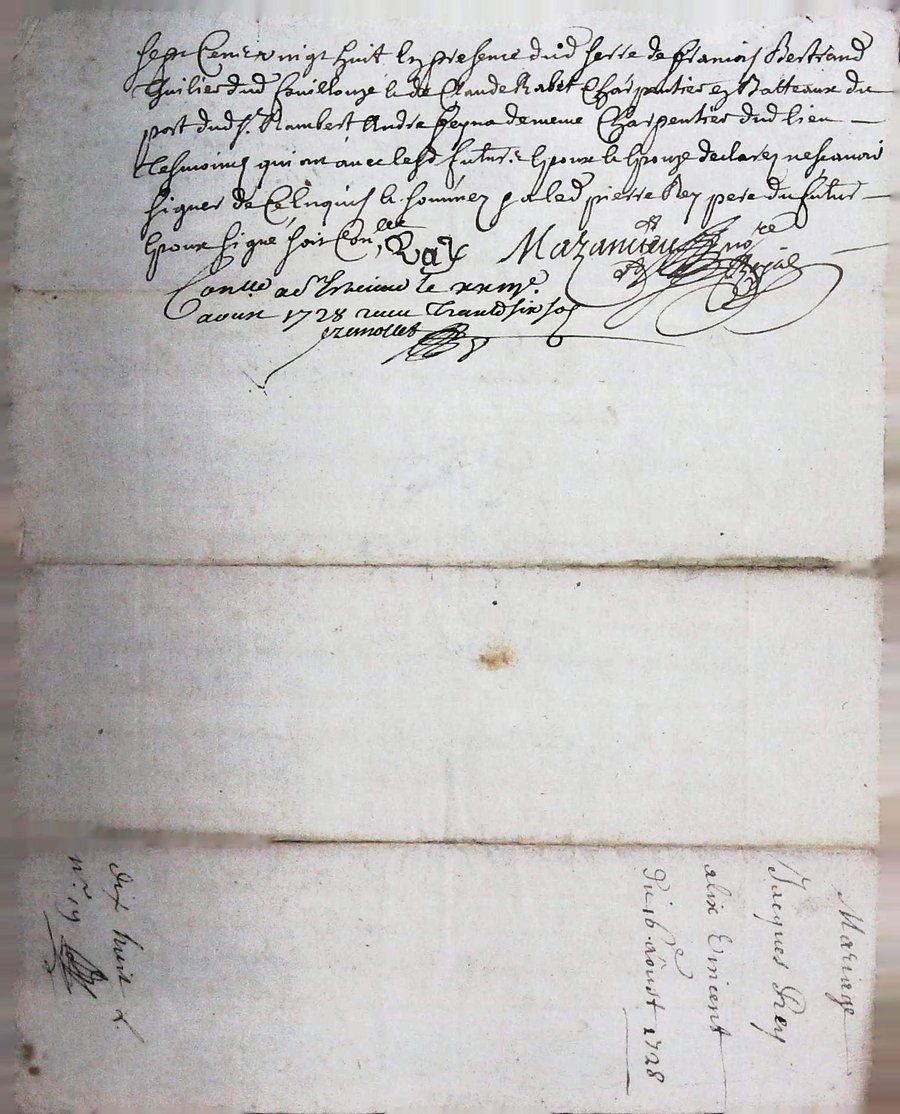 sept Cent vingt huit En presence dud Serre de francois Bertrand
Thuilier dud fouillouze & de Claude Rabet Charpentier ez Batteaux du
port dud St. Rambert Andre peyna de meme Charpentier dud lieu
tesmoins qui ont avec lesd futurs Epoux & Epouze declarez ne scavoir
signer de Ce Enquis & sommez & led pierre Rey pere du futur
Epoux signé soit Con.lle Ray Mazancieu no.re
Royal
Con.lle a St Etienne le xxiii.e
aoust 1728 receu trente six sols
Mariage
Jacques Rey
alix Vincent
du 16.e Aoust 1728
dix huit
n.o 19